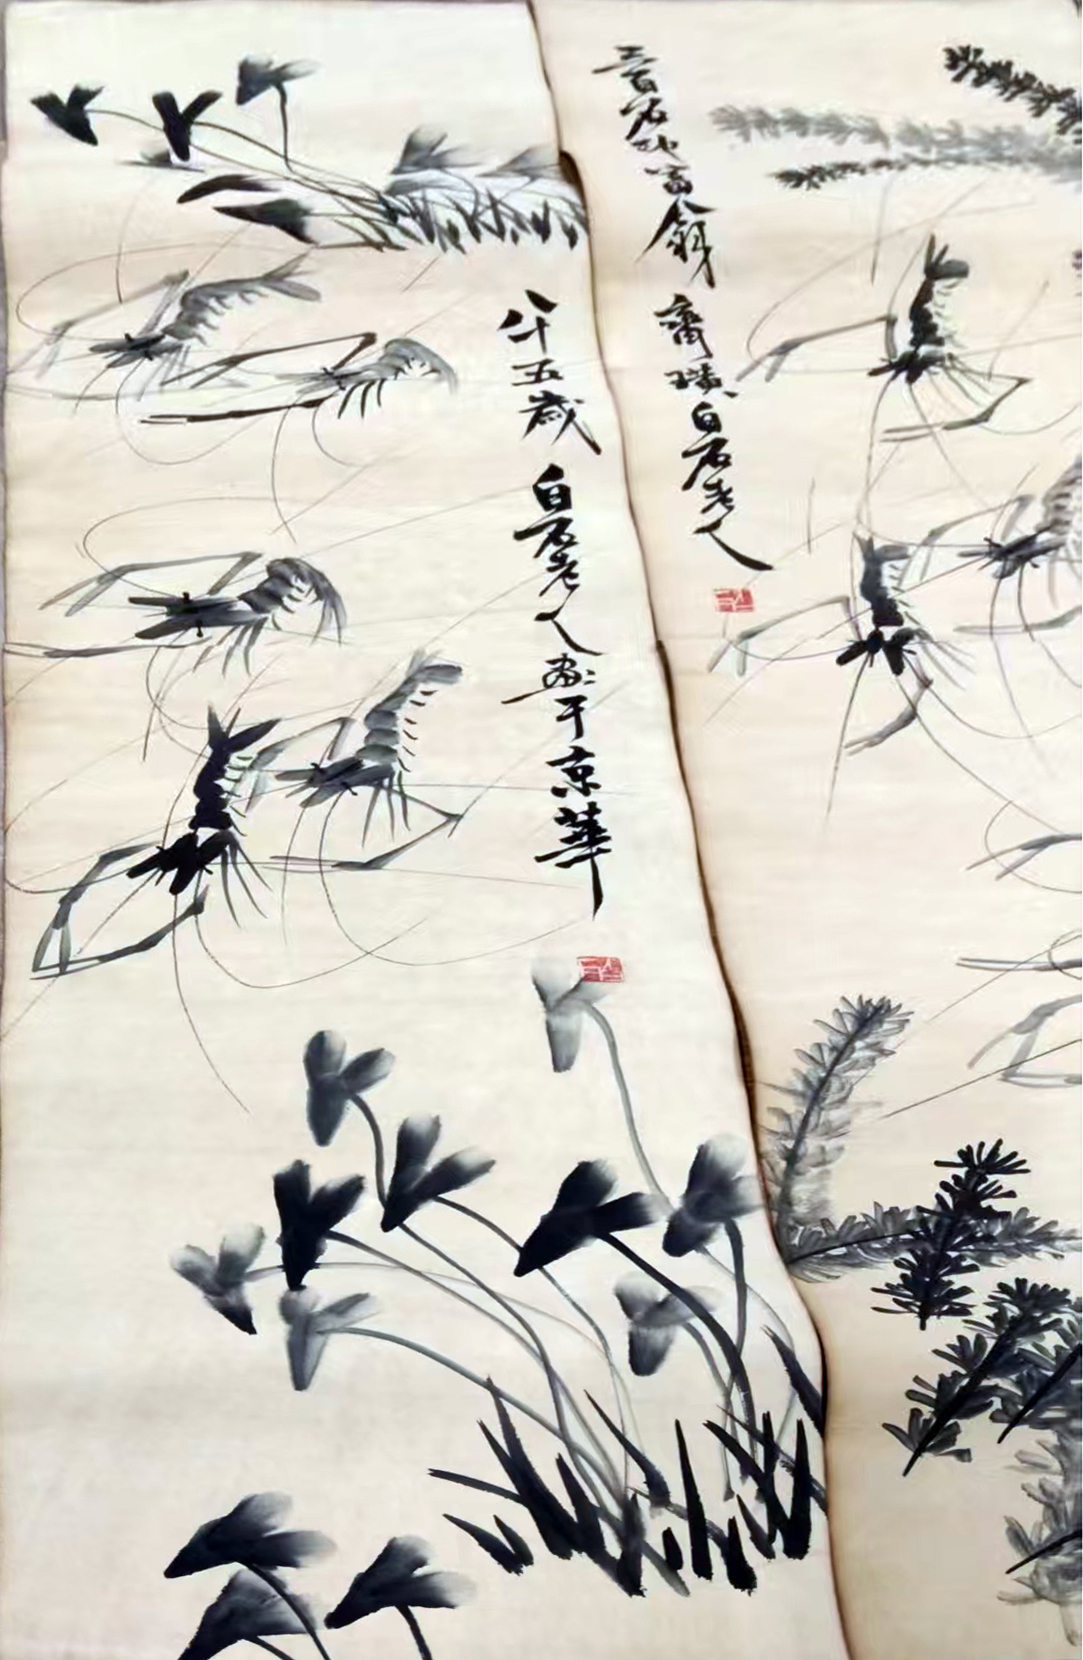 三百石印富翁 齊璜白石老人
八十五歲 白石老人画于京華